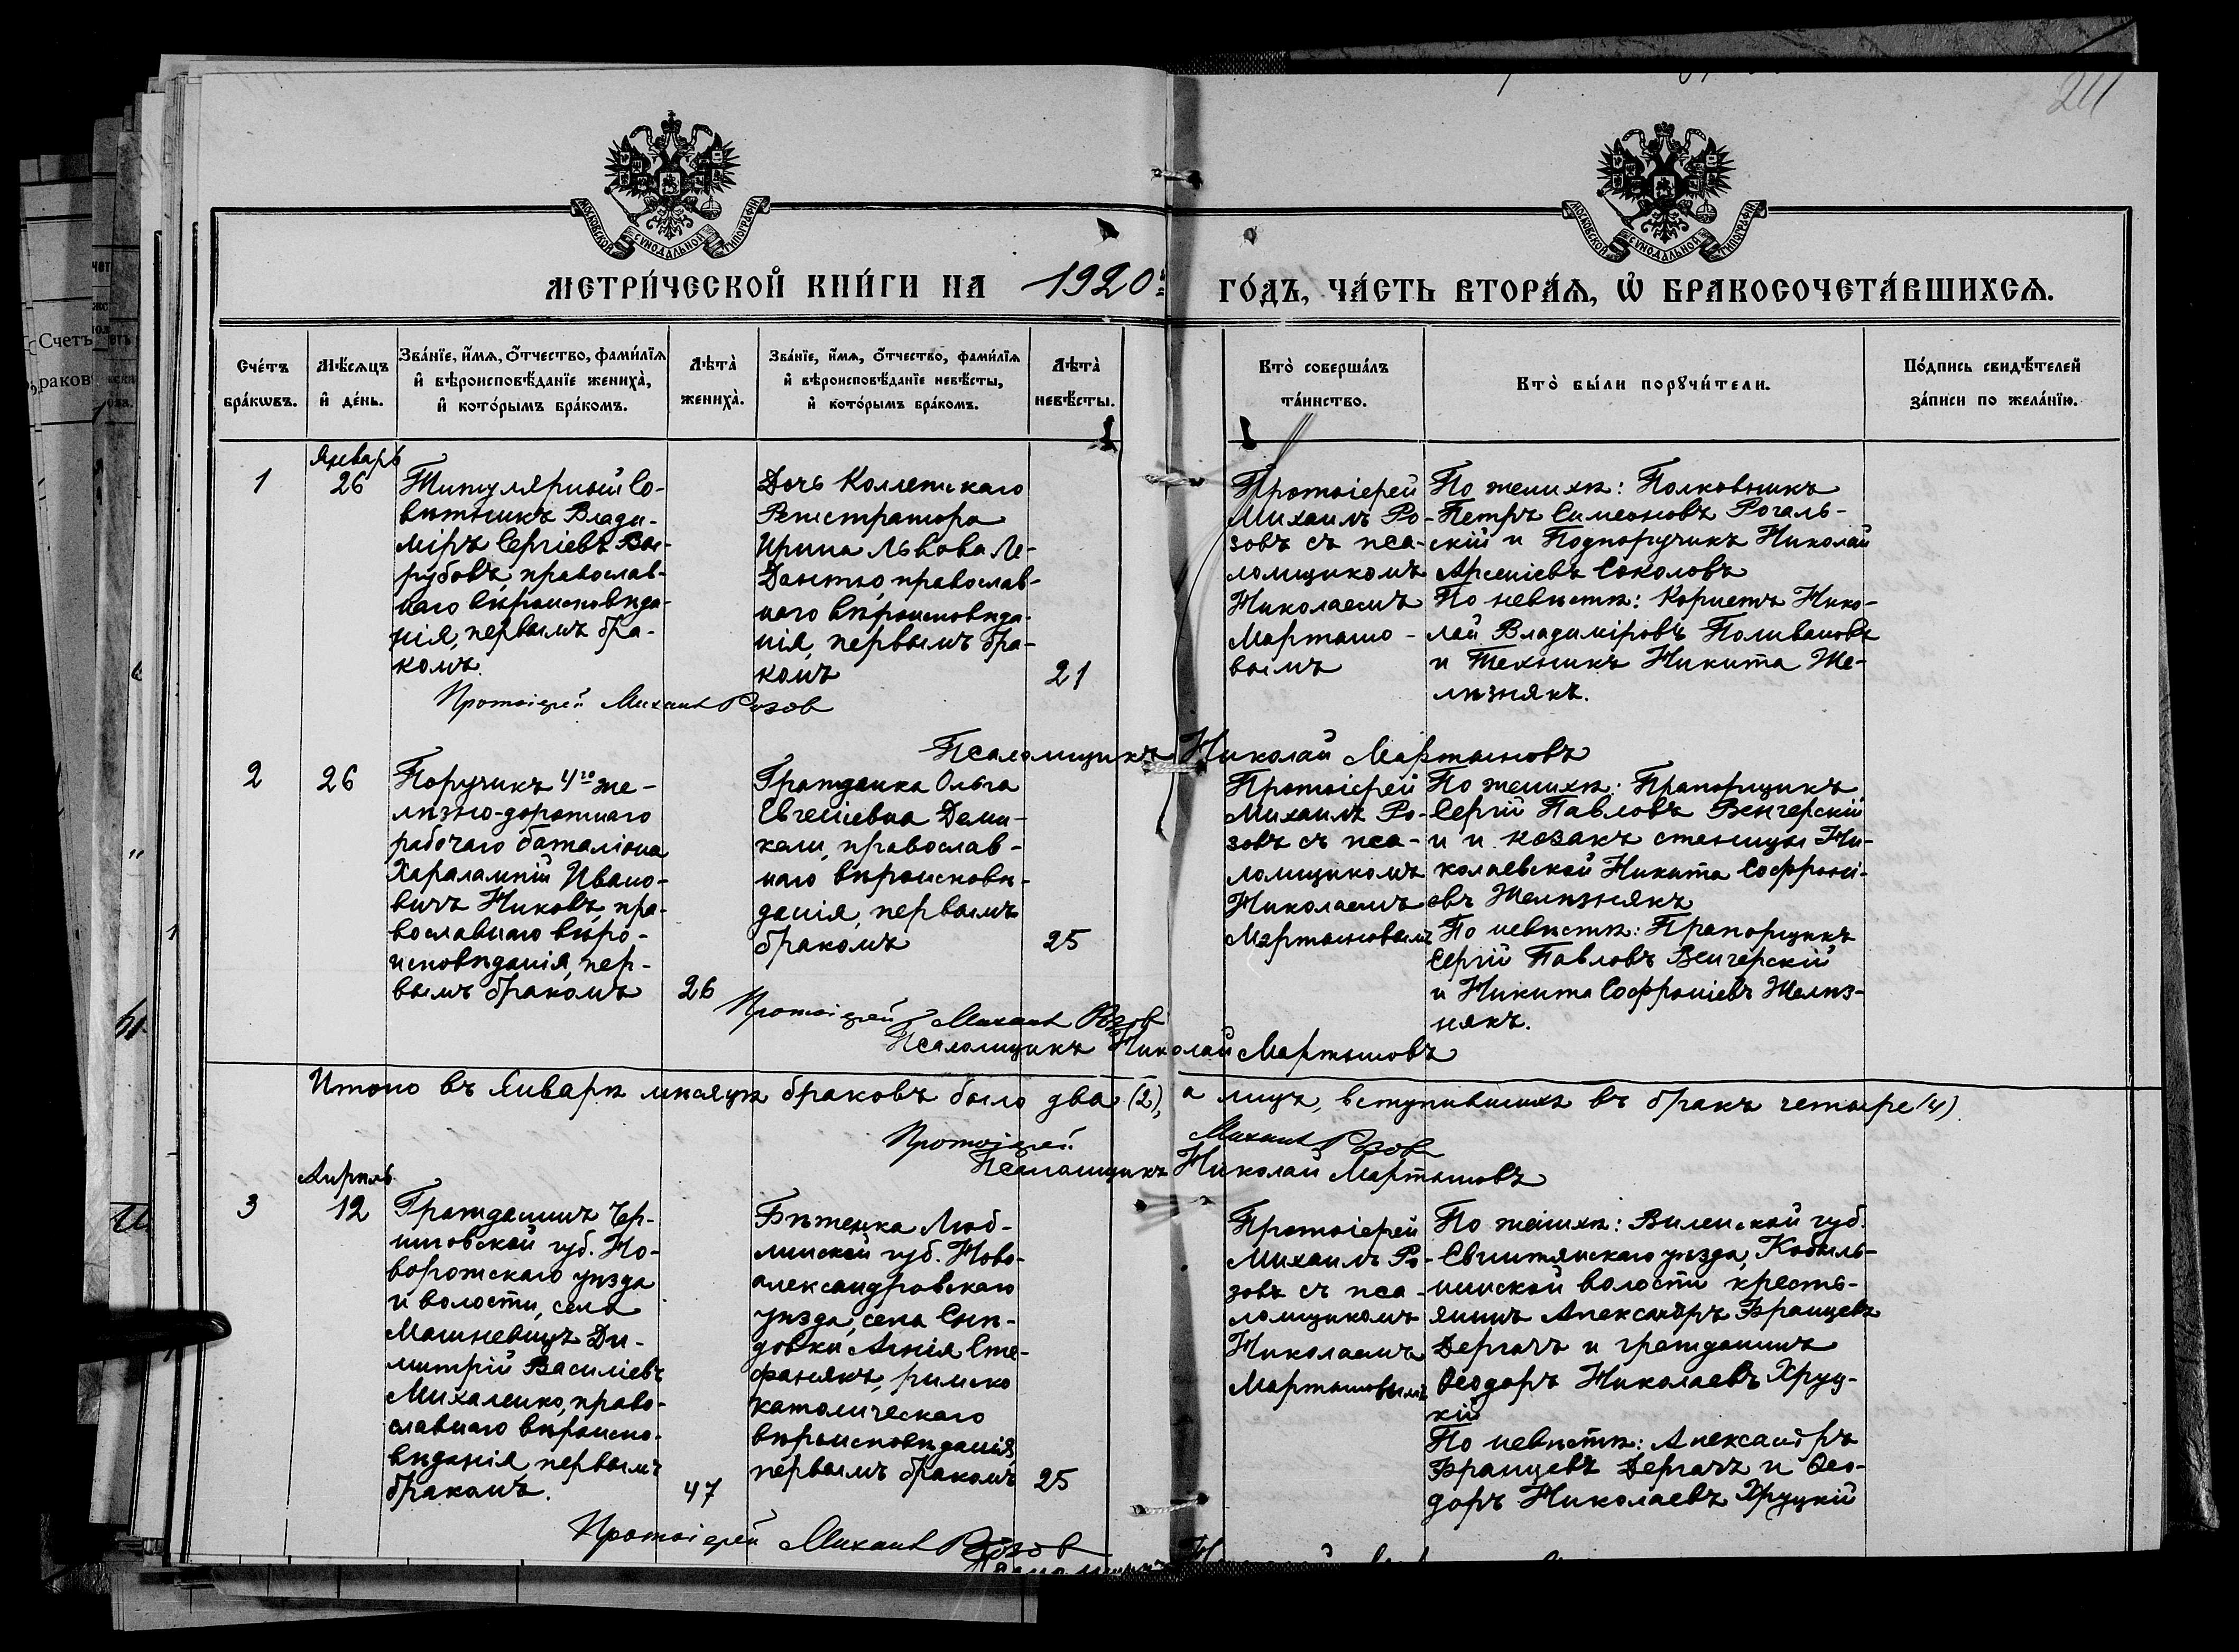 211
МОСКОВСКОЙ СУНОДАЛЬНОЙ ТИПОГРАФІИ
МОСКОВСКОЙ СУНОДАЛЬНОЙ ТИПОГРАФІИ
МЕТРИ́ЧЕСКОЙ КНИ́ГИ НА 1920й ГО́ДЪ, ЧА́СТЬ ВТОРА́Ѧ, Ѡ҆ БРАКОСОЧЕТА́ВШИХСѦ.
Сче́тъ
бра́кѡвъ.
Мѣ́сѧцъ
и҆ де́нь.
Зва́нїе, и҆́мѧ, ѻ҆́тчество, фами́лїѧ
и҆ вѣроисповѣ́данїе жениха̀,
и҆ кото́рымъ бра́комъ.
Лѣ́та̀
жениха̀.
Зва́нїе, и҆́мѧ, ѻ҆́тчество, фами́лїѧ
и҆ вѣроисповѣ́данїе невѣ́сты,
и҆ кото́рымъ бра́комъ.
Лѣ́та̀
невѣ́сты.
Кто̀ соверша́лъ
та́инство.
Кто̀ бы́ли порꙋчи́тели.
По́дпись свидѣ́телей
за́писи по жела́нїю.
1
Январь
26
Титулярный Со-
вѣтникъ Влади-
міръ Сергіевъ
рубовъ, православ-
наго вѣроисповѣда-
нія, первымъ бра-
комъ.
Дочь Коллежскаго
Регистратора
Ирина Львова Ле-
Дантю, православ-
наго вѣроисповѣда-
нія, первымъ бра-
комъ
21
Протоіерей
Михаилъ Ро-
зовъ съ пса-
ломщикомъ
Николаемъ
Мартыно-
вымъ
По женихѣ: Полковникъ
Петръ Симеоновъ Рогаль-
скій и Подпоручикъ Николай
Арсеніевъ Соколовъ
По невѣстѣ: Корнетъ Нико-
лай Владиміровъ Поливановъ
и Техникъ Никита Же-
лѣзнякъ.
Протоіерей Михаил Розов
Псаломщикъ Николай Мартыновъ
2
26
Поручикъ 4го же-
лѣзно-дорожнаго
рабочаго баталіона
Харалампій Ивано-
вичъ Никовъ, пра-
вославнаго вѣро-
исповѣданія, пер-
вымъ бракомъ
26
Гражданка Ольга
Евгеніевна Деми-
кели, православ-
наго вѣроисповѣ-
данія, первымъ
бракомъ
25
Протоіерей
Михаилъ Ро-
зовъ съ пса-
ломщикомъ
Николаемъ
Мартыновымъ
По женихѣ: Прапорщикъ
Сергій Павловъ Венгерскій
и и казакъ станицы Ни-
колаевской Никита Софроні-
евъ Желѣзнякъ
По невѣстѣ: Прапорщикъ
Сергій Павловъ Венгерскій
и Никита Софроніевъ Желѣз-
някъ.
Протоіерей Михаил Розов
Псаломщикъ Николай Мартыновъ
Итого въ Январѣ мѣсяцѣ браковъ было два (2), а лицъ, вступившихъ въ бракъ четыре (4).
Протоіерей Михаил Розов
Псаломщикъ Николай Мартыновъ
3
Апрѣль
12
Гражданинъ Чер-
ниговской губ. Но-
ворожскаго уѣзда
и волости, села
Машневицъ Ди-
митрій Василіевъ
Михаленко, право-
славнаго вѣроиспо-
вѣданія первымъ
бракомъ.
47
Бѣженка Люб-
линской губ. Ново-
александровскаго
уѣзда, села
Агнія Сте-
фанякъ, римско
католическаго
вѣроисповѣданія,
первымъ бракомъ
25
Протоіерей
Михаилъ Ро-
зовъ съ пса-
ломщикомъ
Николаемъ
Мартыновымъ
По женихѣ: Виленской губ.
Свенцянскаго уѣзда, Кобыль-
никской волости кресть-
янинъ Александръ Бранцевъ
Дергачъ и гражданинъ
Ѳеодоръ Николаевъ Хруц-
кій
По невѣстѣ: Александръ
Бранцевъ Дергачъ и Ѳео-
доръ Николаевъ Хруцкій
Протоіерей Михаил Розов